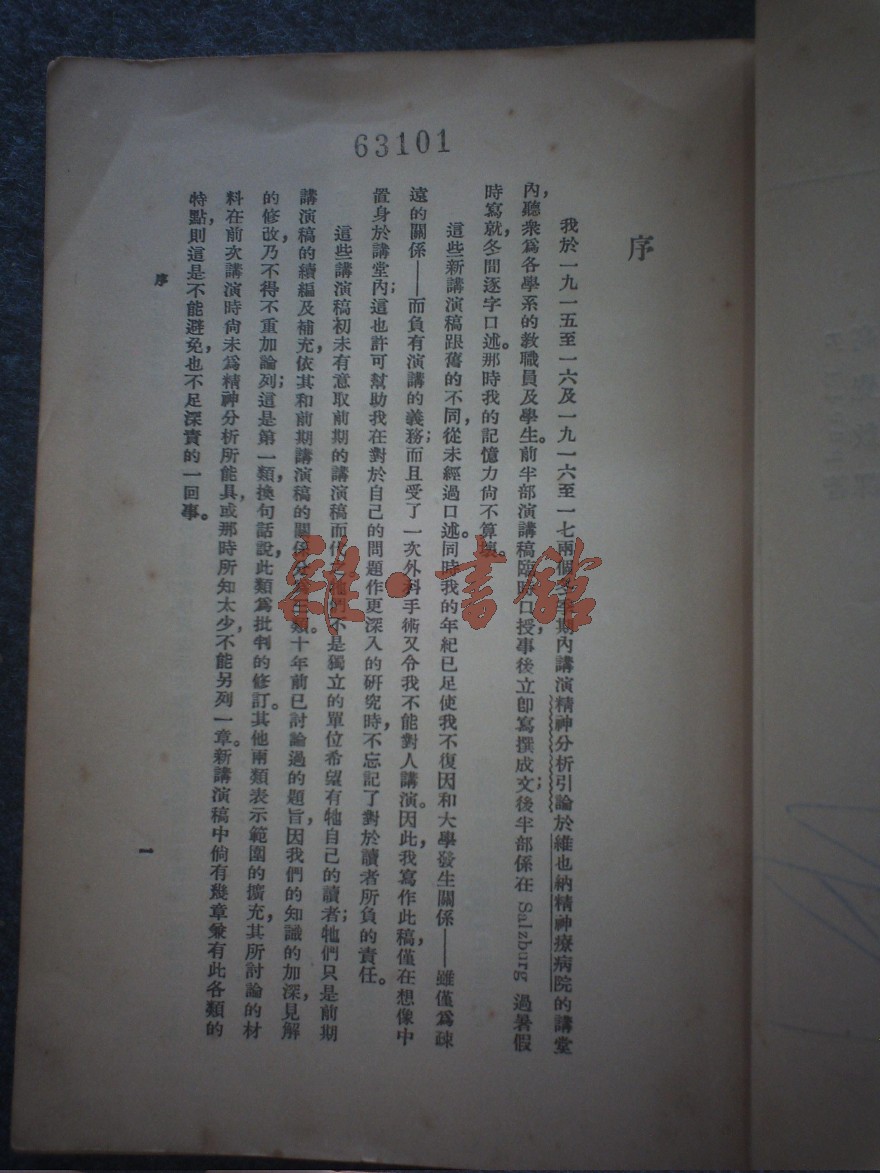 63101
序
我於一九一五至一六及一九一六至一七兩個冬季期內講演精神分析引論於維也納精神療病院的講堂
內，聽衆爲各學系的教職員及學生。前半部演講稿臨時口授，事後立卽寫撰成文；後半部係在 Salzburg 過暑假
時寫就，冬間逐字口述。那時我的記憶力尙不算壞。
這些新講演稿跟舊的不同，從未經過口述。同時我的年紀已足使我不復因和大學發生關係——雖僅爲疎
遠的關係——而負有演講的義務；而且受了一次外科手術又令我不能對人講演。因此，我寫作此稿，僅在想像中
置身於講堂內；這也許可幫助我在對於自己的問題作更深入的研究時，不忘記了對於讀者所負的責任。
這些講演稿初未有意取前期的講演稿而代之。牠們不是獨立的單位希望有牠自己的讀者；牠們只是前期
講演稿的續編及補充，依其和前期講演稿的關係分爲三類。十年前已討論過的題旨，因我們的知識的加深，見解
的修改，乃不得不重加論列；這是第一類，換句話說，此類爲批判的修訂。其他兩類表示範圍的擴充，其所討論的材
料在前次講演時尙未爲精神分析所能具，或那時所知太少，不能另列一章。新講演稿中倘有幾章兼有此各類的
特點，則這是不能避免也不足深責的一回事。
序
一
雜·書館